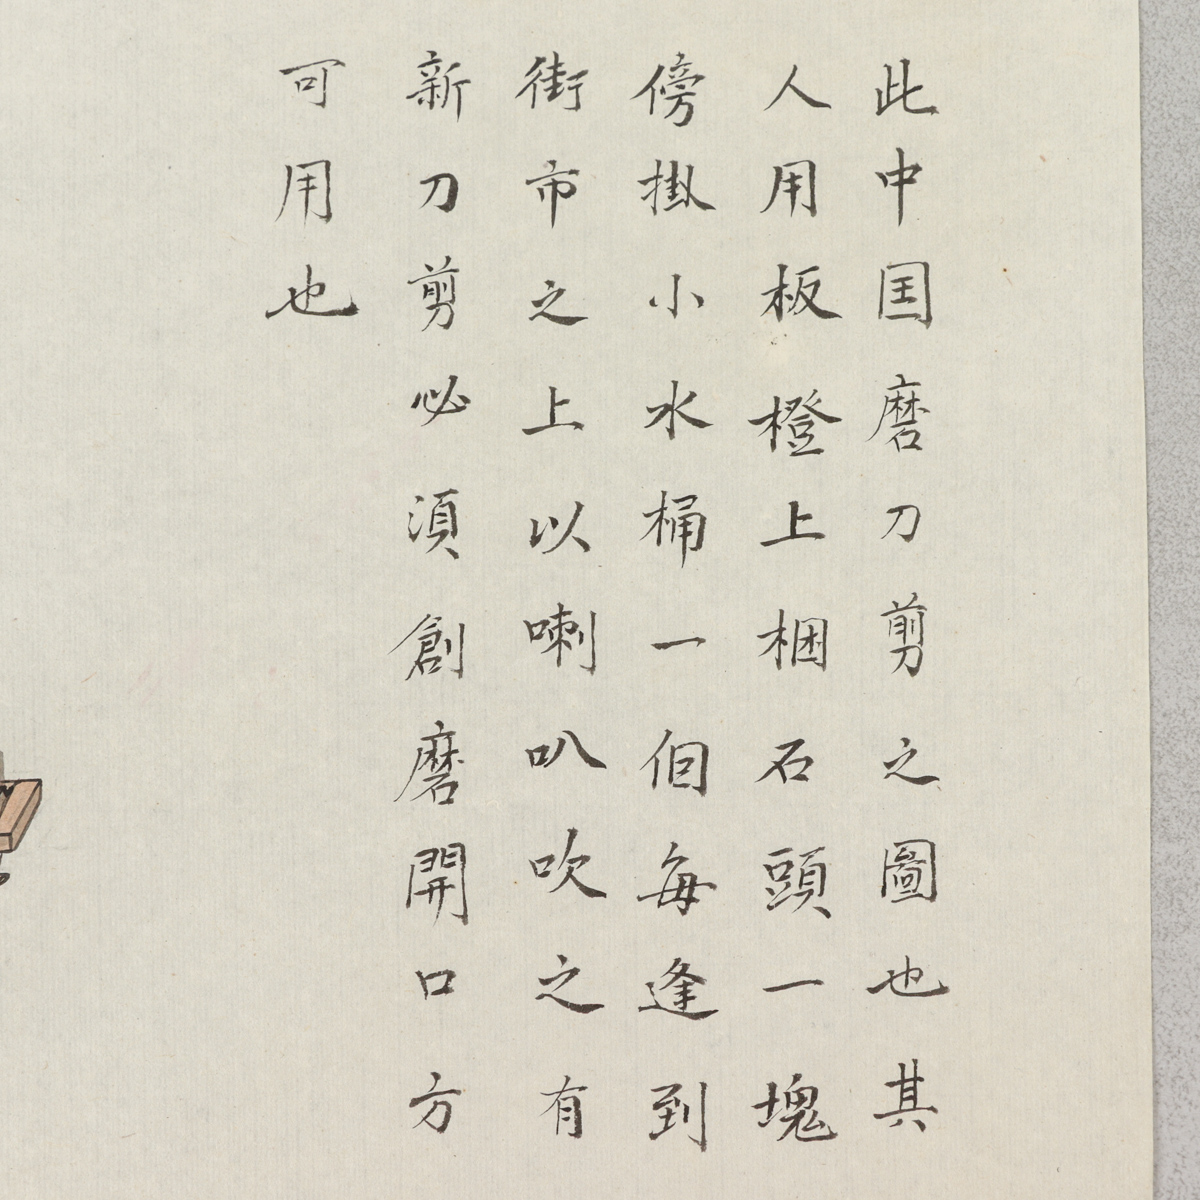 此中国磨刀剪之圖也其
人用板橙上梱石頭一塊
傍掛小水桶一個每逢到
街市之上以喇叭吹之有
新刀剪必須創磨開口方
可用也